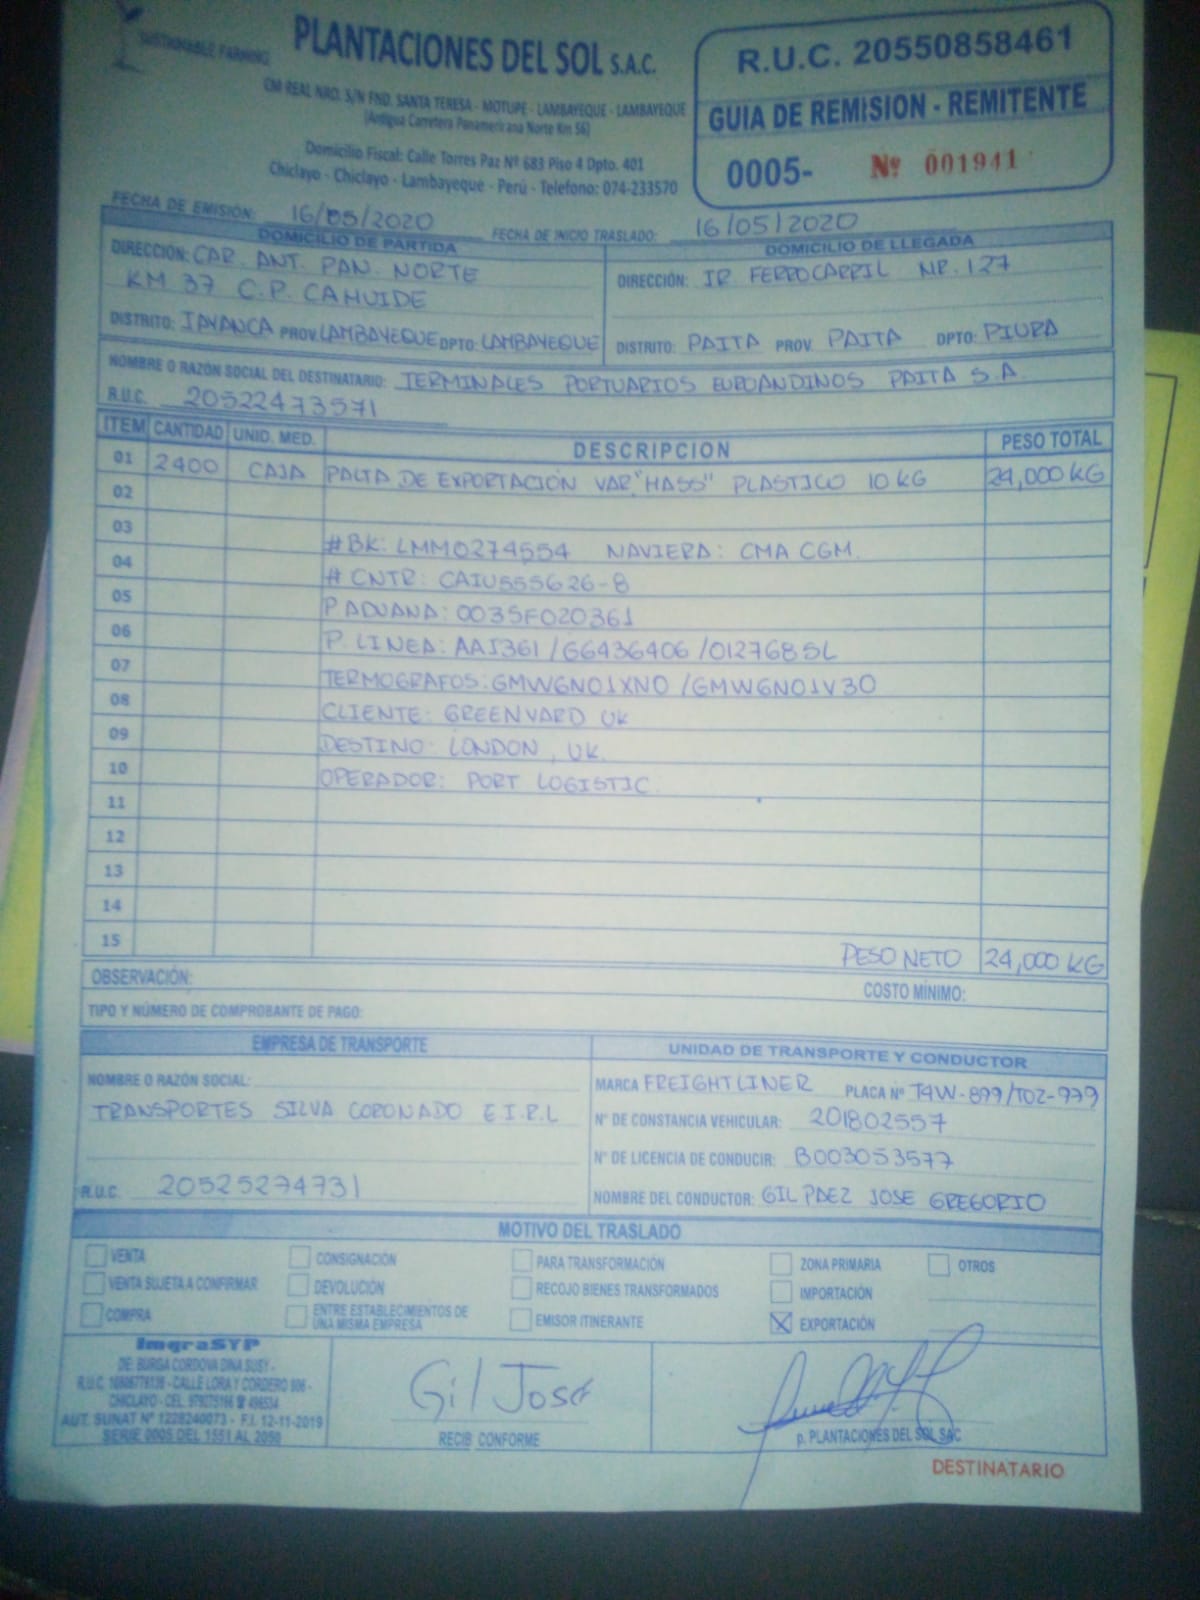 SUSTAINABLE FARMING
PLANTACIONES DEL SOL S.A.C.
CM REAL NRO. S/N FND. SANTA TERESA - MOTUPE - LAMBAYEQUE - LAMBAYEQUE
(Antigua Carretera Panamericana Norte Km 56)
Domicilio Fiscal: Calle Torres Paz Nº 683 Piso 4 Dpto. 401
Chiclayo - Chiclayo - Lambayeque - Perú - Telefono: 074-233570
R.U.C. 20550858461
GUIA DE REMISION - REMITENTE
0005- Nº 001941
FECHA DE EMISIÓN: 16/05/2020 FECHA DE INICIO TRASLADO: 16/05/2020
DOMICILIO DE PARTIDA
DIRECCIÓN: CAR. ANT. PAN. NORTE
KM 37 C.P. CAHUIDE
DISTRITO: JAYANCA PROV. LAMBAYEQUE DPTO: LAMBAYEQUE
DOMICILIO DE LLEGADA
DIRECCIÓN: JR. FERROCARRIL NR. 127
DISTRITO: PAITA PROV. PAITA DPTO: PIURA
NOMBRE O RAZÓN SOCIAL DEL DESTINATARIO: TERMINALES PORTUARIOS EUROANDINOS PAITA S.A.
R.U.C. 20522473571
ITEM CANTIDAD UNID. MED. DESCRIPCION PESO TOTAL
01 2400 CAJA PALTA DE EXPORTACIÓN VAR. "HASS" PLASTICO 10 KG 24,000 KG
02
03 #BK: LMM0274554 NAVIERA: CMA CGM.
04 # CNTR: CAIU555626-8
05 P. ADUANA: 0035F020361
06 P. LINEA: AAI361 / 66436406 / 0127685L
07 TERMOGRAFOS: GMWGN01XN0 / GMWGN01V30
08 CLIENTE: GREENYARD UK
09 DESTINO: LONDON, UK.
10 OPERADOR: PORT LOGISTIC.
11
12
13
14
15 PESO NETO 24,000 KG
OBSERVACIÓN:
COSTO MÍNIMO:
TIPO Y NÚMERO DE COMPROBANTE DE PAGO:
EMPRESA DE TRANSPORTE
NOMBRE O RAZÓN SOCIAL:
TRANSPORTES SILVA CORONADO E.I.R.L
R.U.C. 20525274731
UNIDAD DE TRANSPORTE Y CONDUCTOR
MARCA FREIGHTLINER PLACA Nº T4W-899/T0Z-979
Nº DE CONSTANCIA VEHICULAR: 201802557
Nº DE LICENCIA DE CONDUCIR: B003053577
NOMBRE DEL CONDUCTOR: GIL PAEZ JOSE GREGORIO
MOTIVO DEL TRASLADO
VENTA CONSIGNACIÓN PARA TRANSFORMACIÓN ZONA PRIMARIA OTROS
VENTA SUJETA A CONFIRMAR DEVOLUCIÓN RECOJO BIENES TRANSFORMADOS IMPORTACIÓN
COMPRA ENTRE ESTABLECIMIENTOS DE UNA MISMA EMPRESA EMISOR ITINERANTE X EXPORTACIÓN
ImgraSYP
DE: BURGA CORDOVA DINA SUSY -
R.U.C. - CALLE LORA Y CORDERO -
CHICLAYO - CEL.
AUT. SUNAT Nº 1228240073 - F.I. 12-11-2019
SERIE 0005 DEL 1551 AL 2050
Gil José
RECIBÍ CONFORME
p. PLANTACIONES DEL SOL SAC
DESTINATARIO